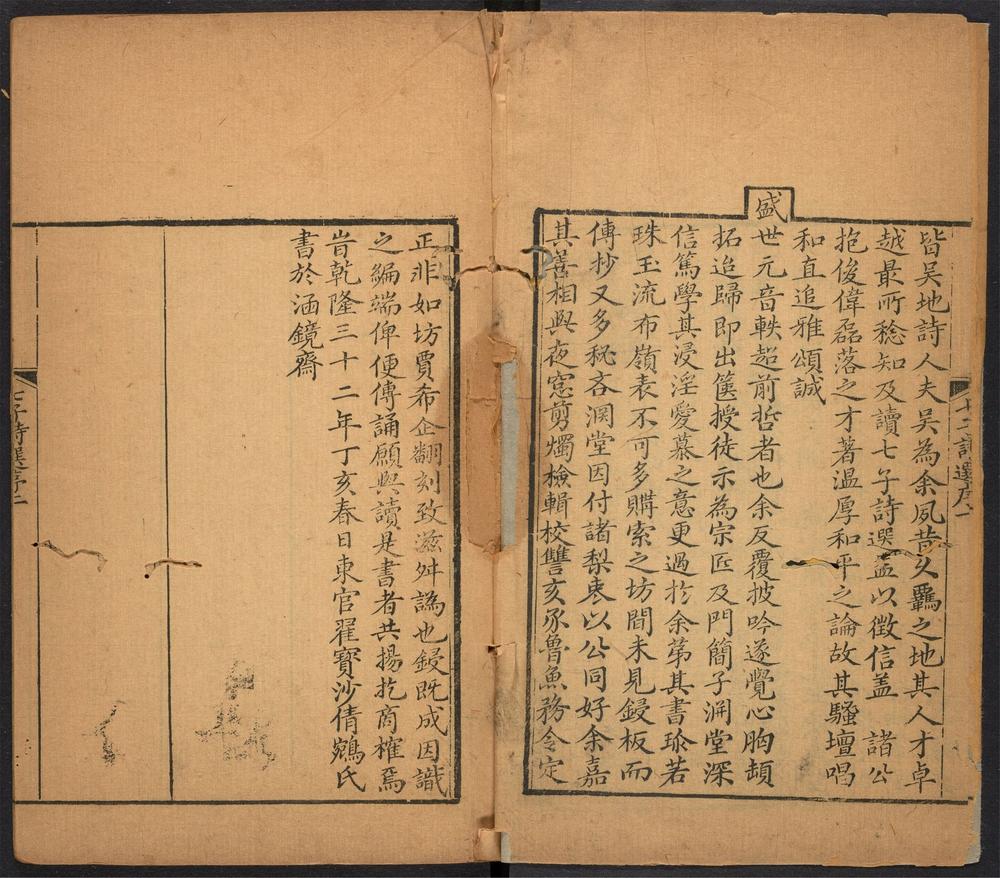 皆吴地詩人夫吴為余夙昔久羈之地其人才卓
越最所稔知及讀七子詩選益以徵信盖諸公
抱俊偉磊落之才著溫厚和平之論故其騷壇唱
和直追雅頌誠
盛世元音軼超前哲者也余反覆披吟遂覺心胸頓
拓迨歸即出篋授徒示為宗匠及門簡子溯堂深
信篤學其浸淫愛慕之意更過扵余苐其書珎若
珠玉流布嶺表不可多購索之坊間未見鋟板而
傳抄又多秘吝溯堂因付諸梨枣以公同好余嘉
其善相與夜窓剪燭檢輯校讐亥豕魯魚務令定
七子詩選序一
正非如坊賈希企翻刻致滋舛譌也鋟既成因識
之編端俾便傳誦願與讀是書者共揚扢商榷焉
旹乾隆三十二年丁亥春日東官翟寳沙倩鵷氏
書於涵鏡齋
七子詩選序二